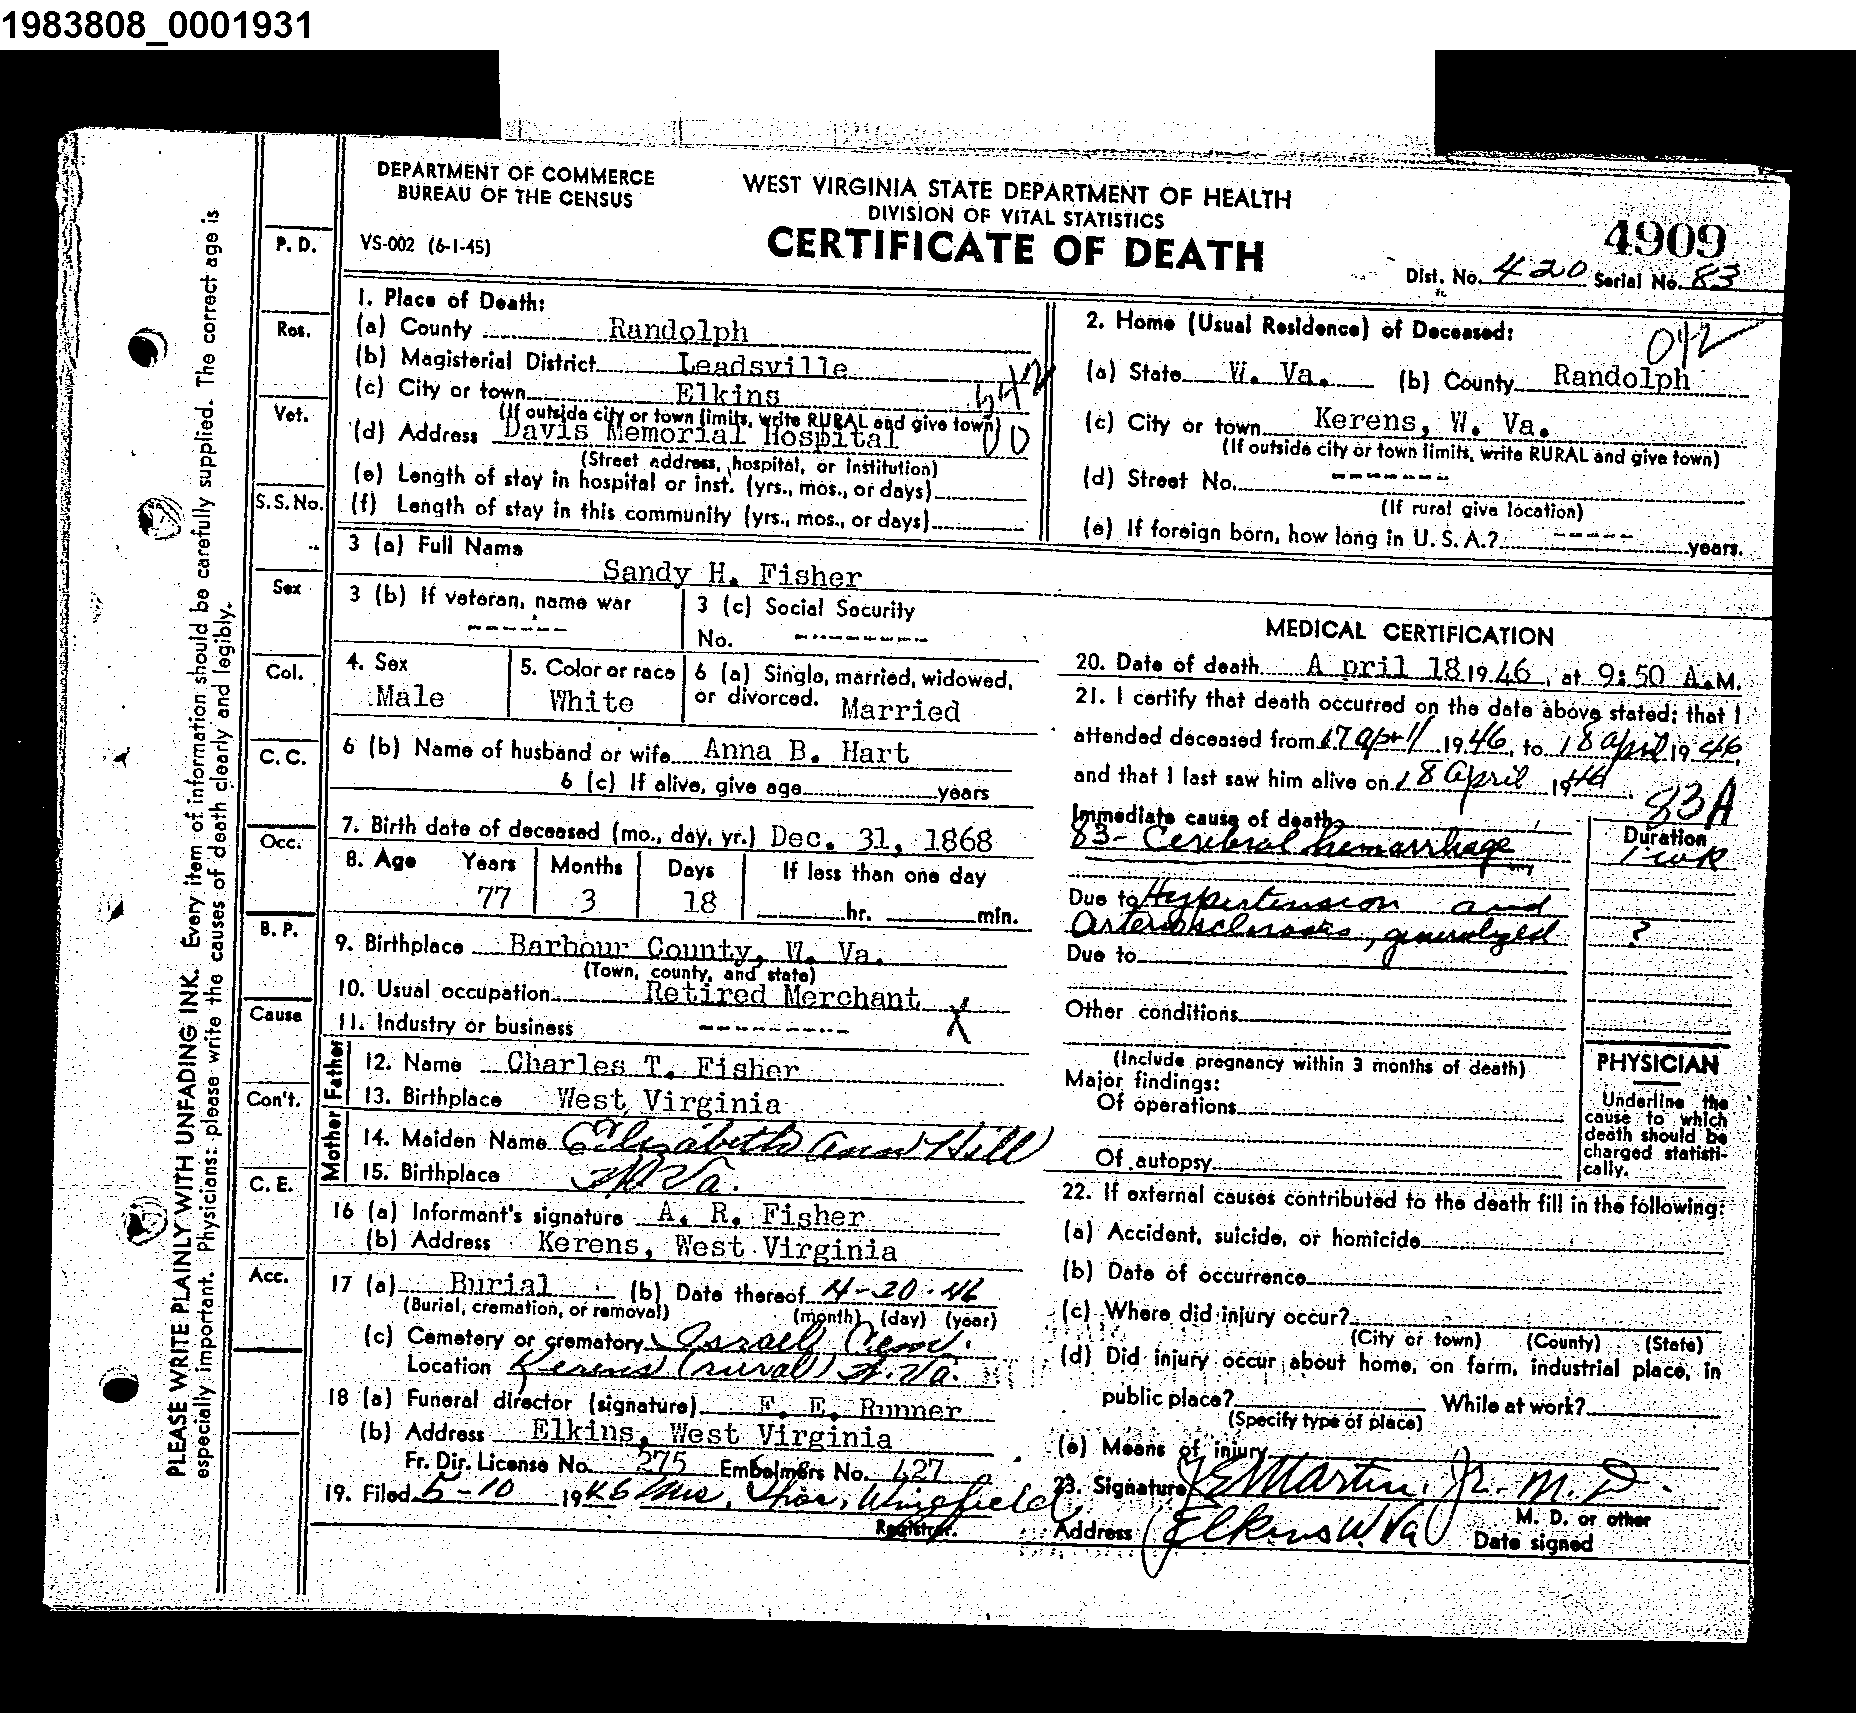 1983808_0001931
DEPARTMENT OF COMMERCE
BUREAU OF THE CENSUS
VS-002 (6-1-45)
WEST VIRGINIA STATE DEPARTMENT OF HEALTH
DIVISION OF VITAL STATISTICS
CERTIFICATE OF DEATH
4909
Dist. No. 420 Serial No. 83
PLEASE WRITE PLAINLY WITH UNFADING INK. Every item of information should be carefully supplied. The correct age is
especially important. Physicians: please write the causes of death clearly and legibly.
P. D.
Res.
Vet.
S. S. No.
Sex
Col.
C. C.
Occ.
B. P.
Cause
Con't.
C. E.
Acc.
1. Place of Death:
(a) County Randolph
(b) Magisterial District Leadsville
(c) City or town Elkins
(If outside city or town limits, write RURAL and give town)
(d) Address Davis Memorial Hospital
(Street address, hospital, or institution)
(e) Length of stay in hospital or inst. (yrs., mos., or days)
(f) Length of stay in this community (yrs., mos., or days)
2. Home (Usual Residence) of Deceased:
(a) State W. Va. (b) County Randolph
(c) City or town Kerens, W. Va.
(If outside city or town limits, write RURAL and give town)
(d) Street No. -------
(If rural give location)
(e) If foreign born, how long in U. S. A.? ----- years.
3 (a) Full Name
Sandy H. Fisher
3 (b) If veteran, name war
------
3 (c) Social Security
No. --------
4. Sex
Male
5. Color or race
White
6 (a) Single, married, widowed,
or divorced. Married
6 (b) Name of husband or wife Anna B. Hart
6 (c) If alive, give age years
7. Birth date of deceased (mo., day, yr.) Dec. 31, 1868
8. Age Years Months Days If less than one day
77 3 18 hr. min.
9. Birthplace Barbour County, W. Va.
(Town, county, and state)
10. Usual occupation Retired Merchant X
11. Industry or business ---------
Father
12. Name Charles T. Fisher
13. Birthplace West Virginia
Mother
14. Maiden Name Elizabeth Ann Hill
15. Birthplace W Va.
16 (a) Informant's signature A. R. Fisher
(b) Address Kerens, West Virginia
17 (a) Burial (b) Date thereof 4-20-46
(Burial, cremation, or removal) (month) (day) (year)
(c) Cemetery or crematory Israel Cem.
Location Kerens (rural) W. Va.
18 (a) Funeral director (signature) F. E. Runner
(b) Address Elkins, West Virginia
Fr. Dir. License No. 275 Embalmers No. 127
19. Filed 5-10 1946 Mrs. Thos. Wingfield
Registrar.
MEDICAL CERTIFICATION
20. Date of death A pril 18 1946, at 9:50 A.M.
21. I certify that death occurred on the date above stated; that I
attended deceased from 17 April 1946, to 18 April 1946
and that I last saw him alive on 18 April 1946
83A
Immediate cause of death Duration
83- Cerebral hemorrhage 1 wk
Due to Hypertension and
Arteriosclerosis, generalized ?
Due to
Other conditions
(Include pregnancy within 3 months of death)
Major findings:
Of operations
Of autopsy
PHYSICIAN
Underline the
cause to which
death should be
charged statisti-
cally.
22. If external causes contributed to the death fill in the following:
(a) Accident, suicide, or homicide
(b) Date of occurrence
(c) Where did injury occur?
(City or town) (County) (State)
(d) Did injury occur about home, on farm, industrial place, in
public place? While at work?
(Specify type of place)
(e) Means of injury
23. Signature J E Martin, Jr. M. D.
M. D. or other
Address Elkins W. Va Date signed